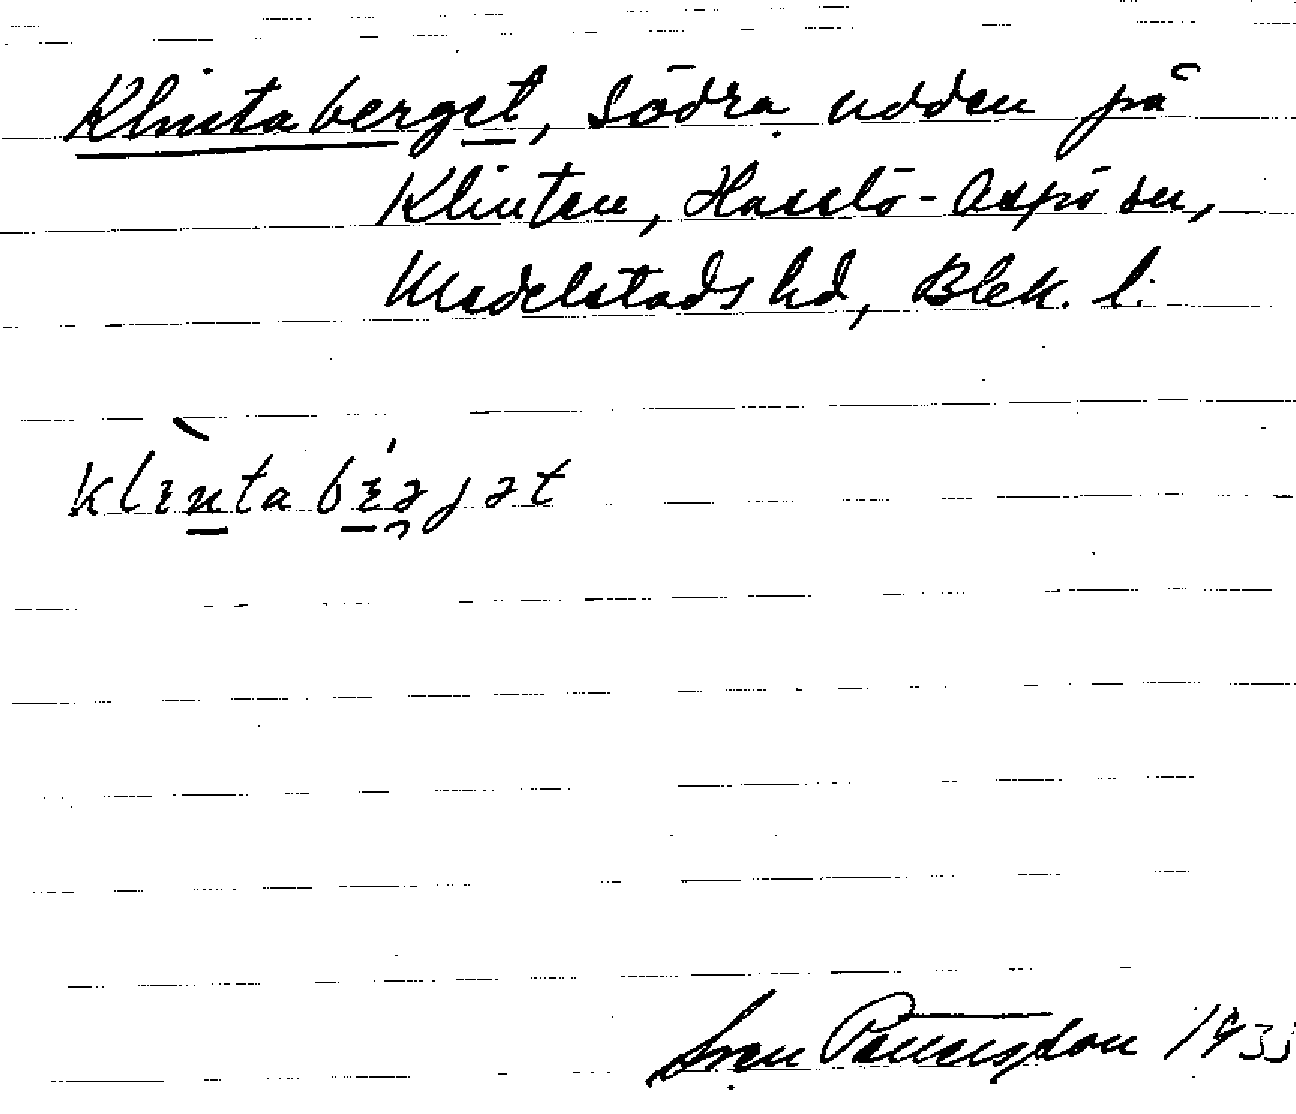 Klintaberget, Södra udden på
Klinten, Hasslö-Aspö sn,
Medelstads hd, Blek. l.
klintabɛəjət
Sven 1933